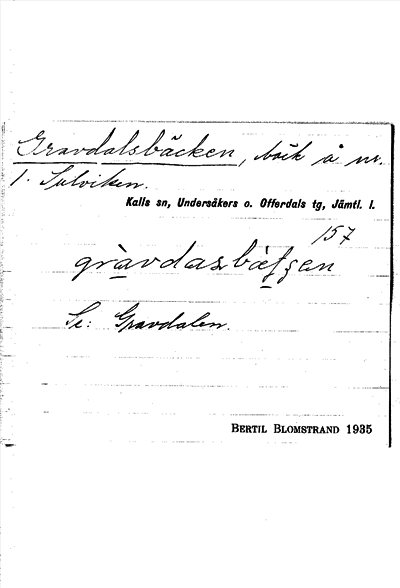 Gravdalsbäcken, bäck å nr.
1. Sulviken.
Kalls sn, Undersåkers o. Offerdals tg, Jämtl. l.
157
gràvdasbàƭʂen
Se: Gravdalen.
BERTIL BLOMSTRAND 1935